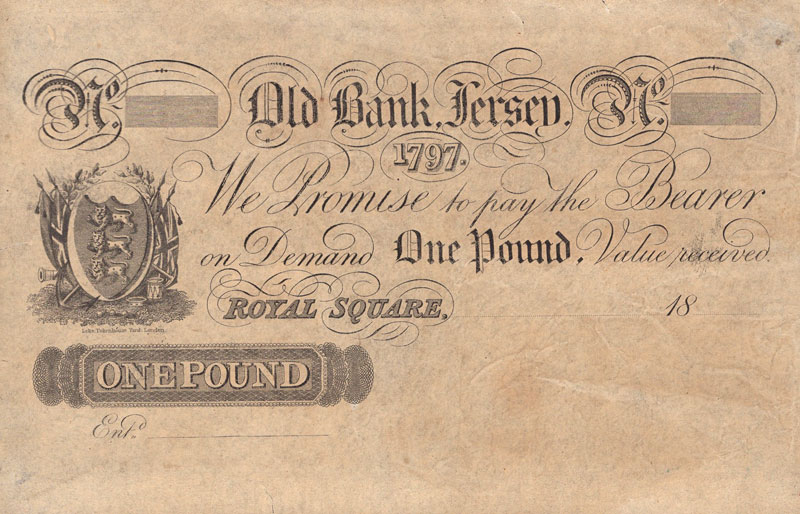 No. Old Bank, Jersey. No.
1797.
We Promise to pay the Bearer
on Demand One Pound, Value received.
ROYAL SQUARE, 18
Yard, London.
ONE POUND
Entd.